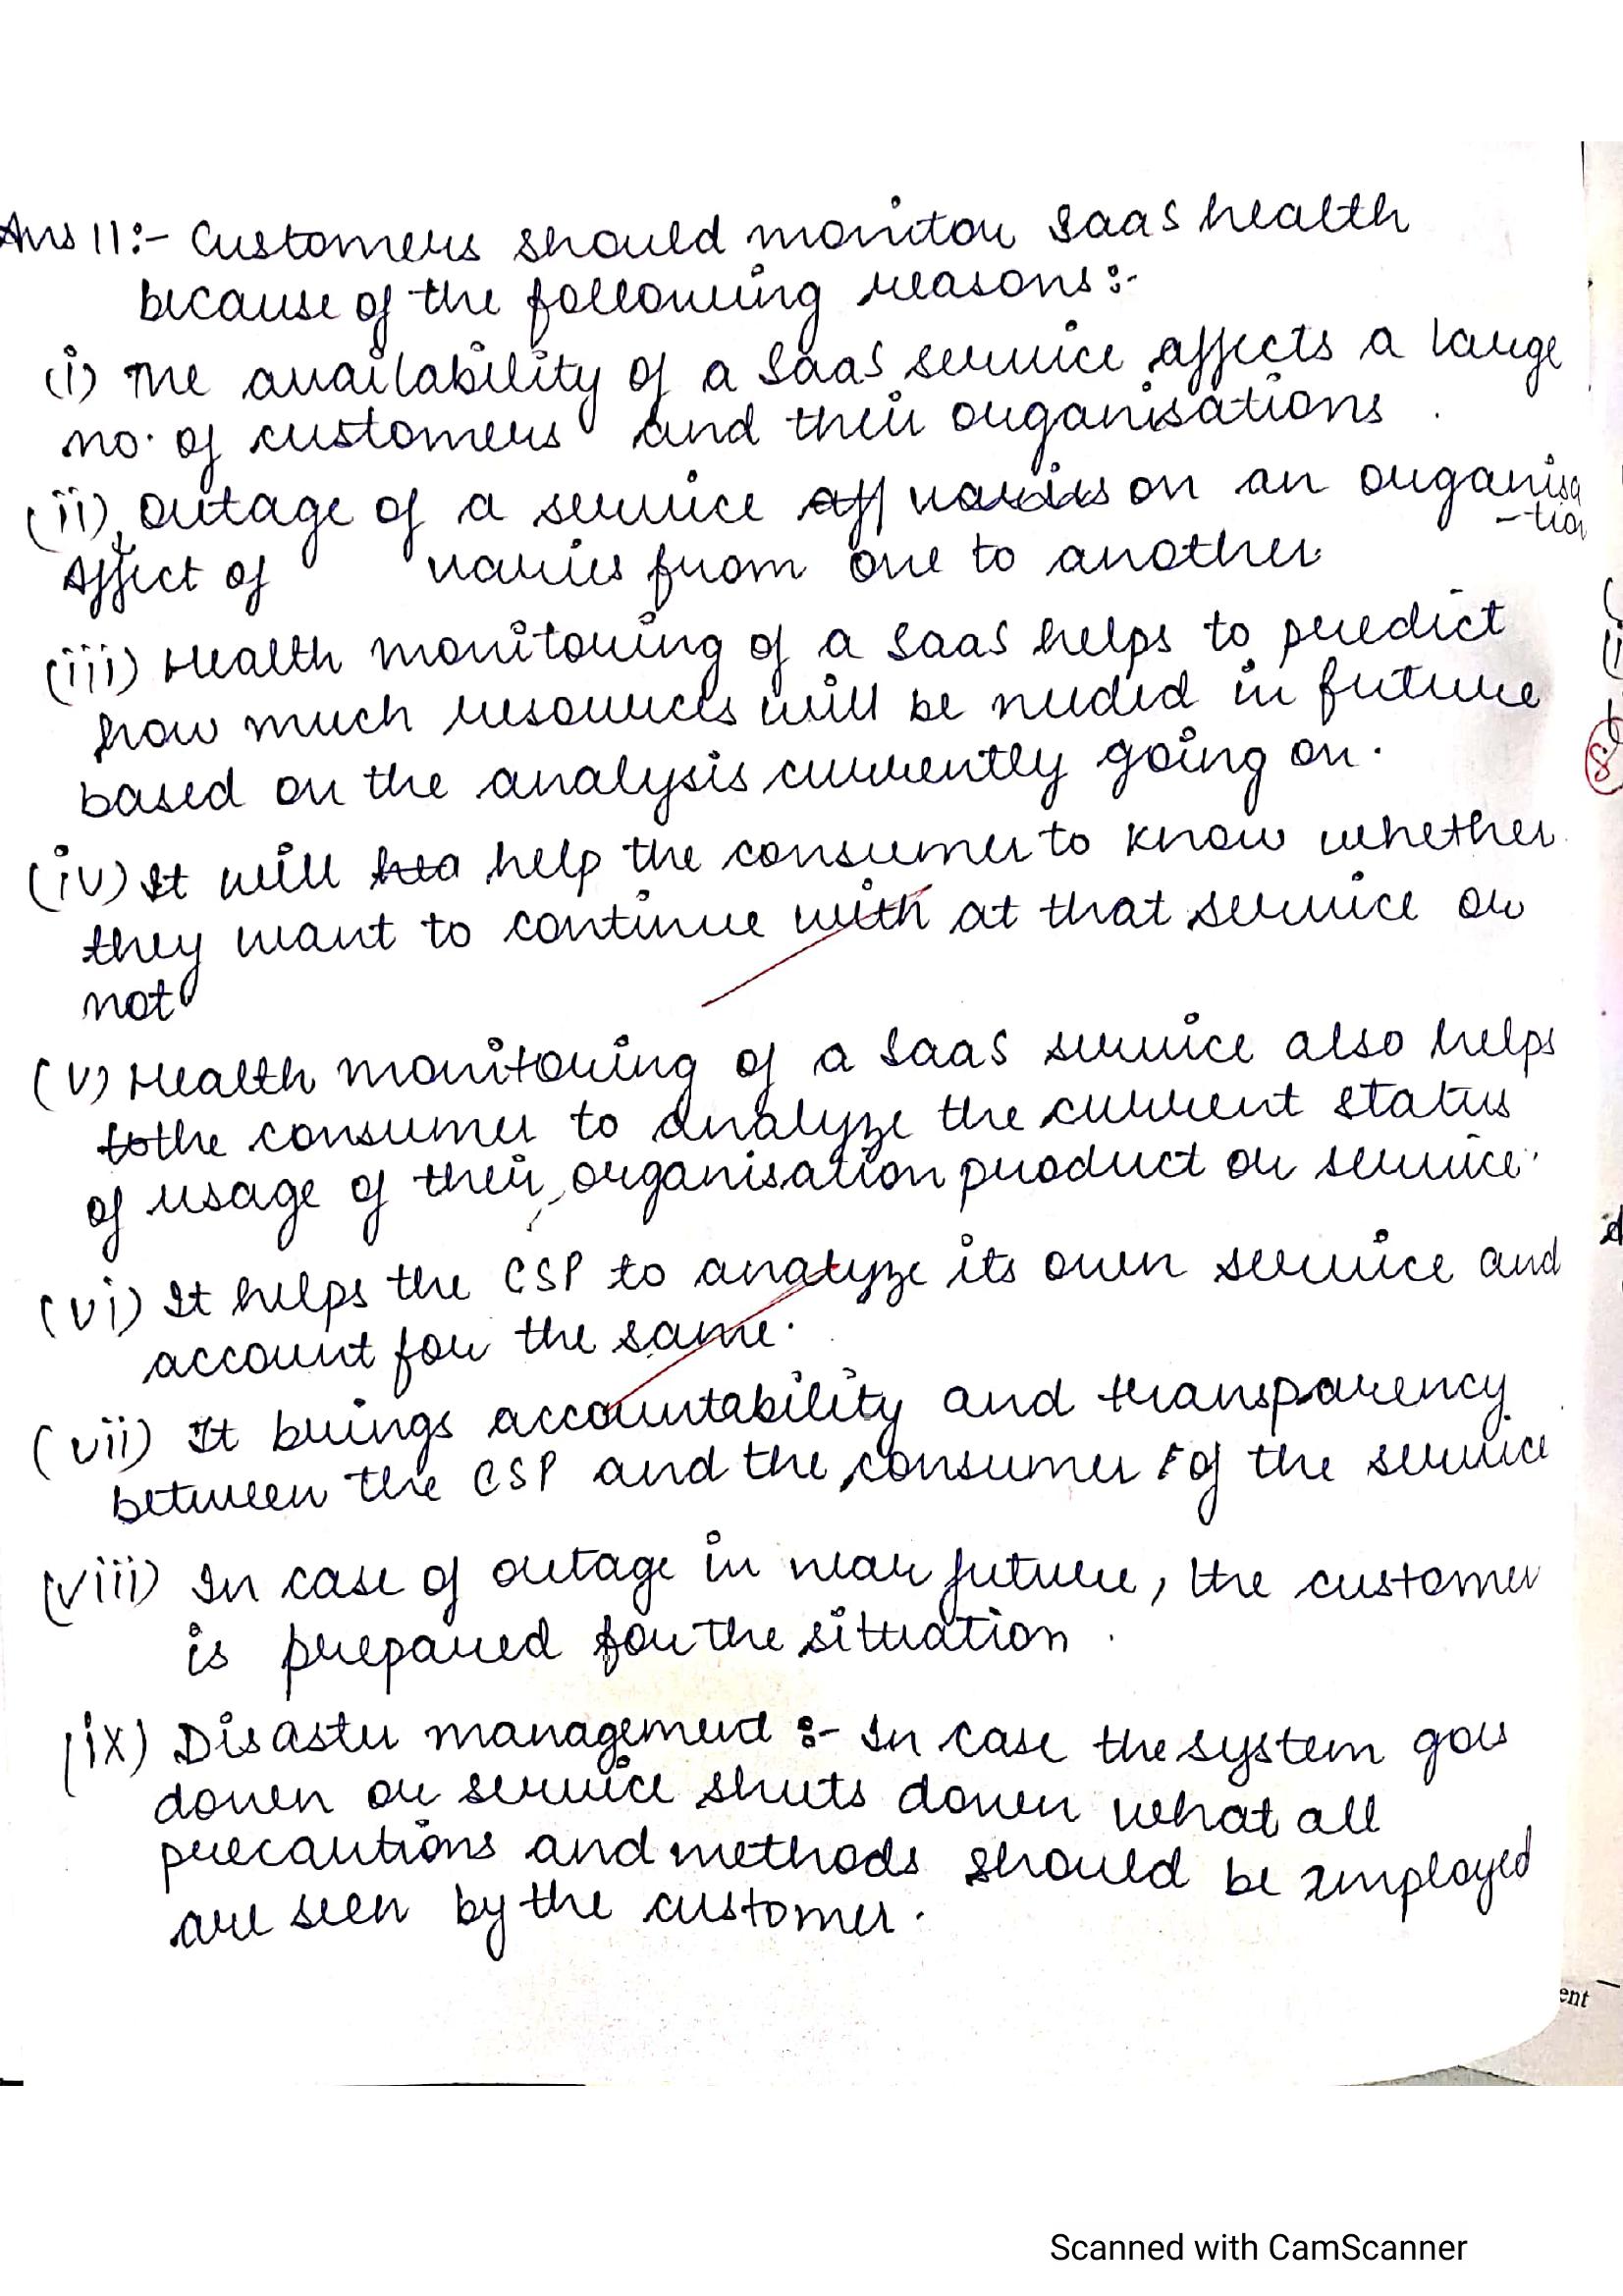 Ans 11:- Customers should monitor SaaS health
because of the following reasons:-
(i) The availability of a SaaS service affects a large
no. of customers and their organisations.
(ii) outage of a service aff varies on an organisa
-tion
Affect of varies from one to another
(iii) Health monitoring of a SaaS helps to predict
how much resources will be needed in future
based on the analysis currently going on.
(iv) It will hea help the consumer to know whether
they want to continue with at that service or
not
(v) Health monitoring of a SaaS service also helps
to the consumer to analyze the current status
of usage of their organisation product or service.
(vi) It helps the CSP to analyze its own service and
account for the same.
(vii) It brings accountability and transparency
between the CSP and the consumer of the service
(viii) In case of outage in near future, the customer
is prepared for the situation.
(ix) Disaster management :- In case the system goes
down or service shuts down what all
precautions and methods should be employed
are seen by the customer.
ent
Scanned with CamScanner